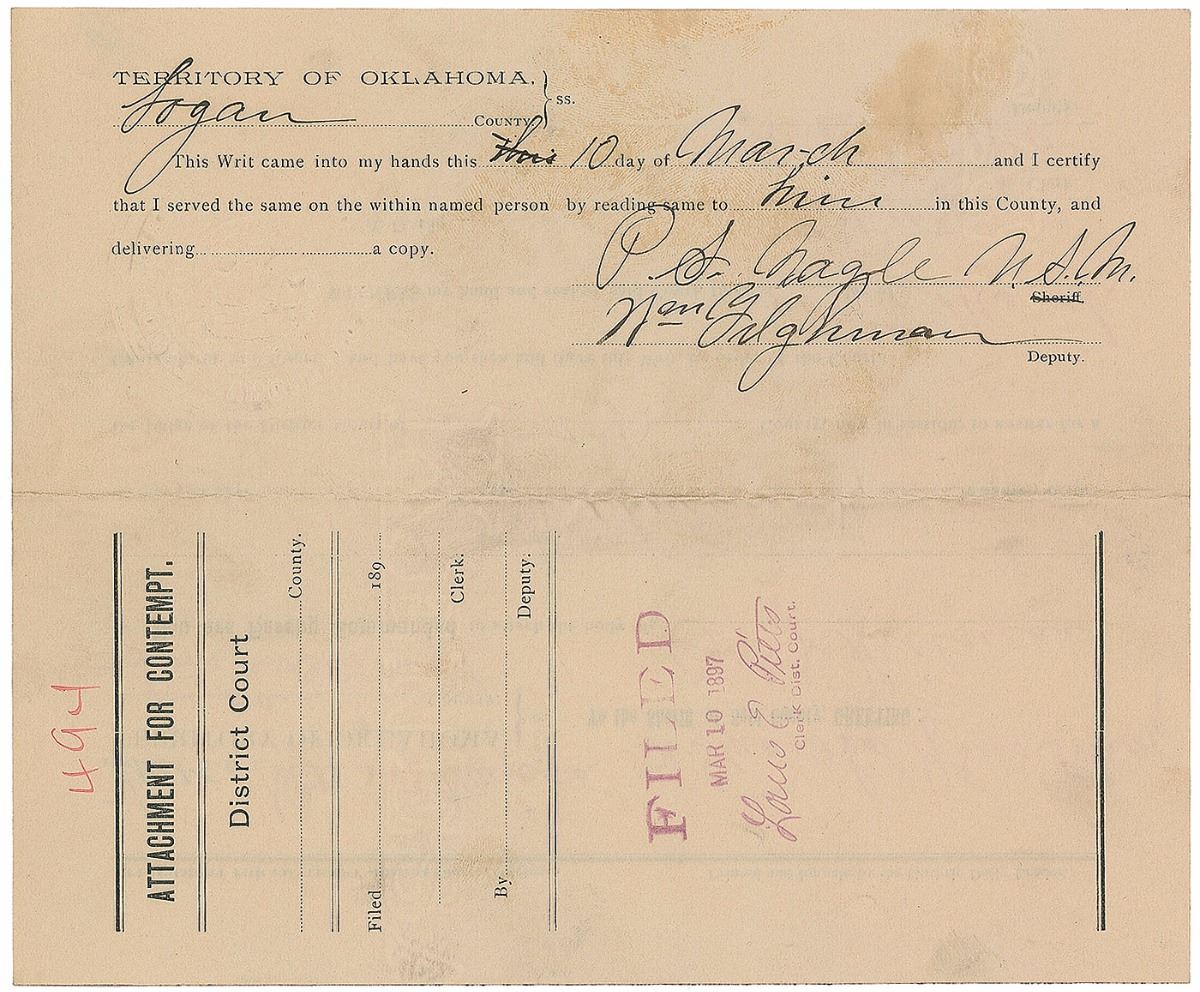 TERRITORY OF OKLAHOMA, } ss.
Logan COUNTY
This Writ came into my hands this this 10 day of March and I certify
that I served the same on the within named person by reading same to him in this County, and
delivering a copy.
P. S. Nagle U.S.M.
Sheriff.
Wm Tilghman
Deputy.
494
ATTACHMENT FOR CONTEMPT.
District Court
County.
Filed 189
Clerk.
By Deputy.
FILED
MAR 10 1897
Louis G Pitts
Clerk Dist. Court.